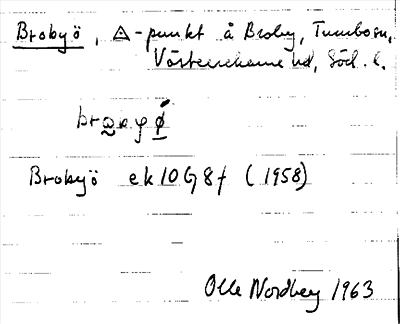 Brobyö, △-punkt å Broby, Tumbo sn,
Västerrekarne hd, Södl. l.
Brobyö ek 10 G 8 f (1958)
Olle Nordberg 1963